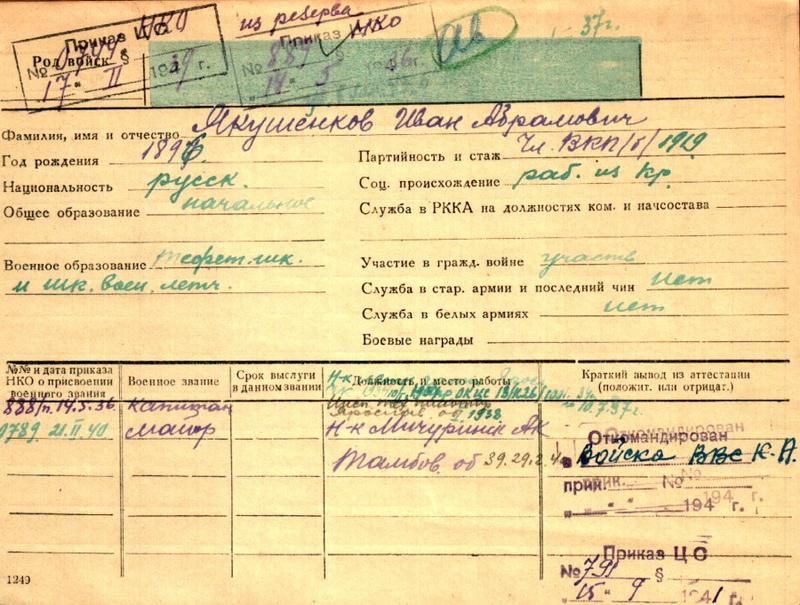 Приказ НКО из резерва Приказ НКО Ав 37г.
Род войск
№ 0799 § № 887 §
17 " II 1941 г. 39 14 " 5 36 г.
Фамилия, имя и отчество Якушенков Иван Абрамович
Год рождения 1896 Партийность и стаж Чл. ВКП/б/ 1919
Национальность русск. Соц. происхождение раб. из кр.
Общее образование начальное Служба в РККА на должностях ком. и начсостава
Военное образование теорет. шк. Участие в гражд. войне участв
и шк. воен. летч. Служба в стар. армии и последний чин нет
Служба в белых армиях нет
Боевые награды
№№ и дата приказа НКО о присвоении военного звания
Военное звание
Срок выслуги в данном звании
Должность и место работы
Краткий вывод из аттестации (положит. или отрицат.)
10.7.37г.
888/п. 14.5.36. капитан 1938
0789 21.II.40 майор Н-к Мичуринск АК
Тамбов. об 39. 29.2.4
Откомандирован
в Войска ВВС К.А.
прик. №
" " 194 г.
Приказ ЦО
№ 791 §
"15" 9 1941 г.
1249